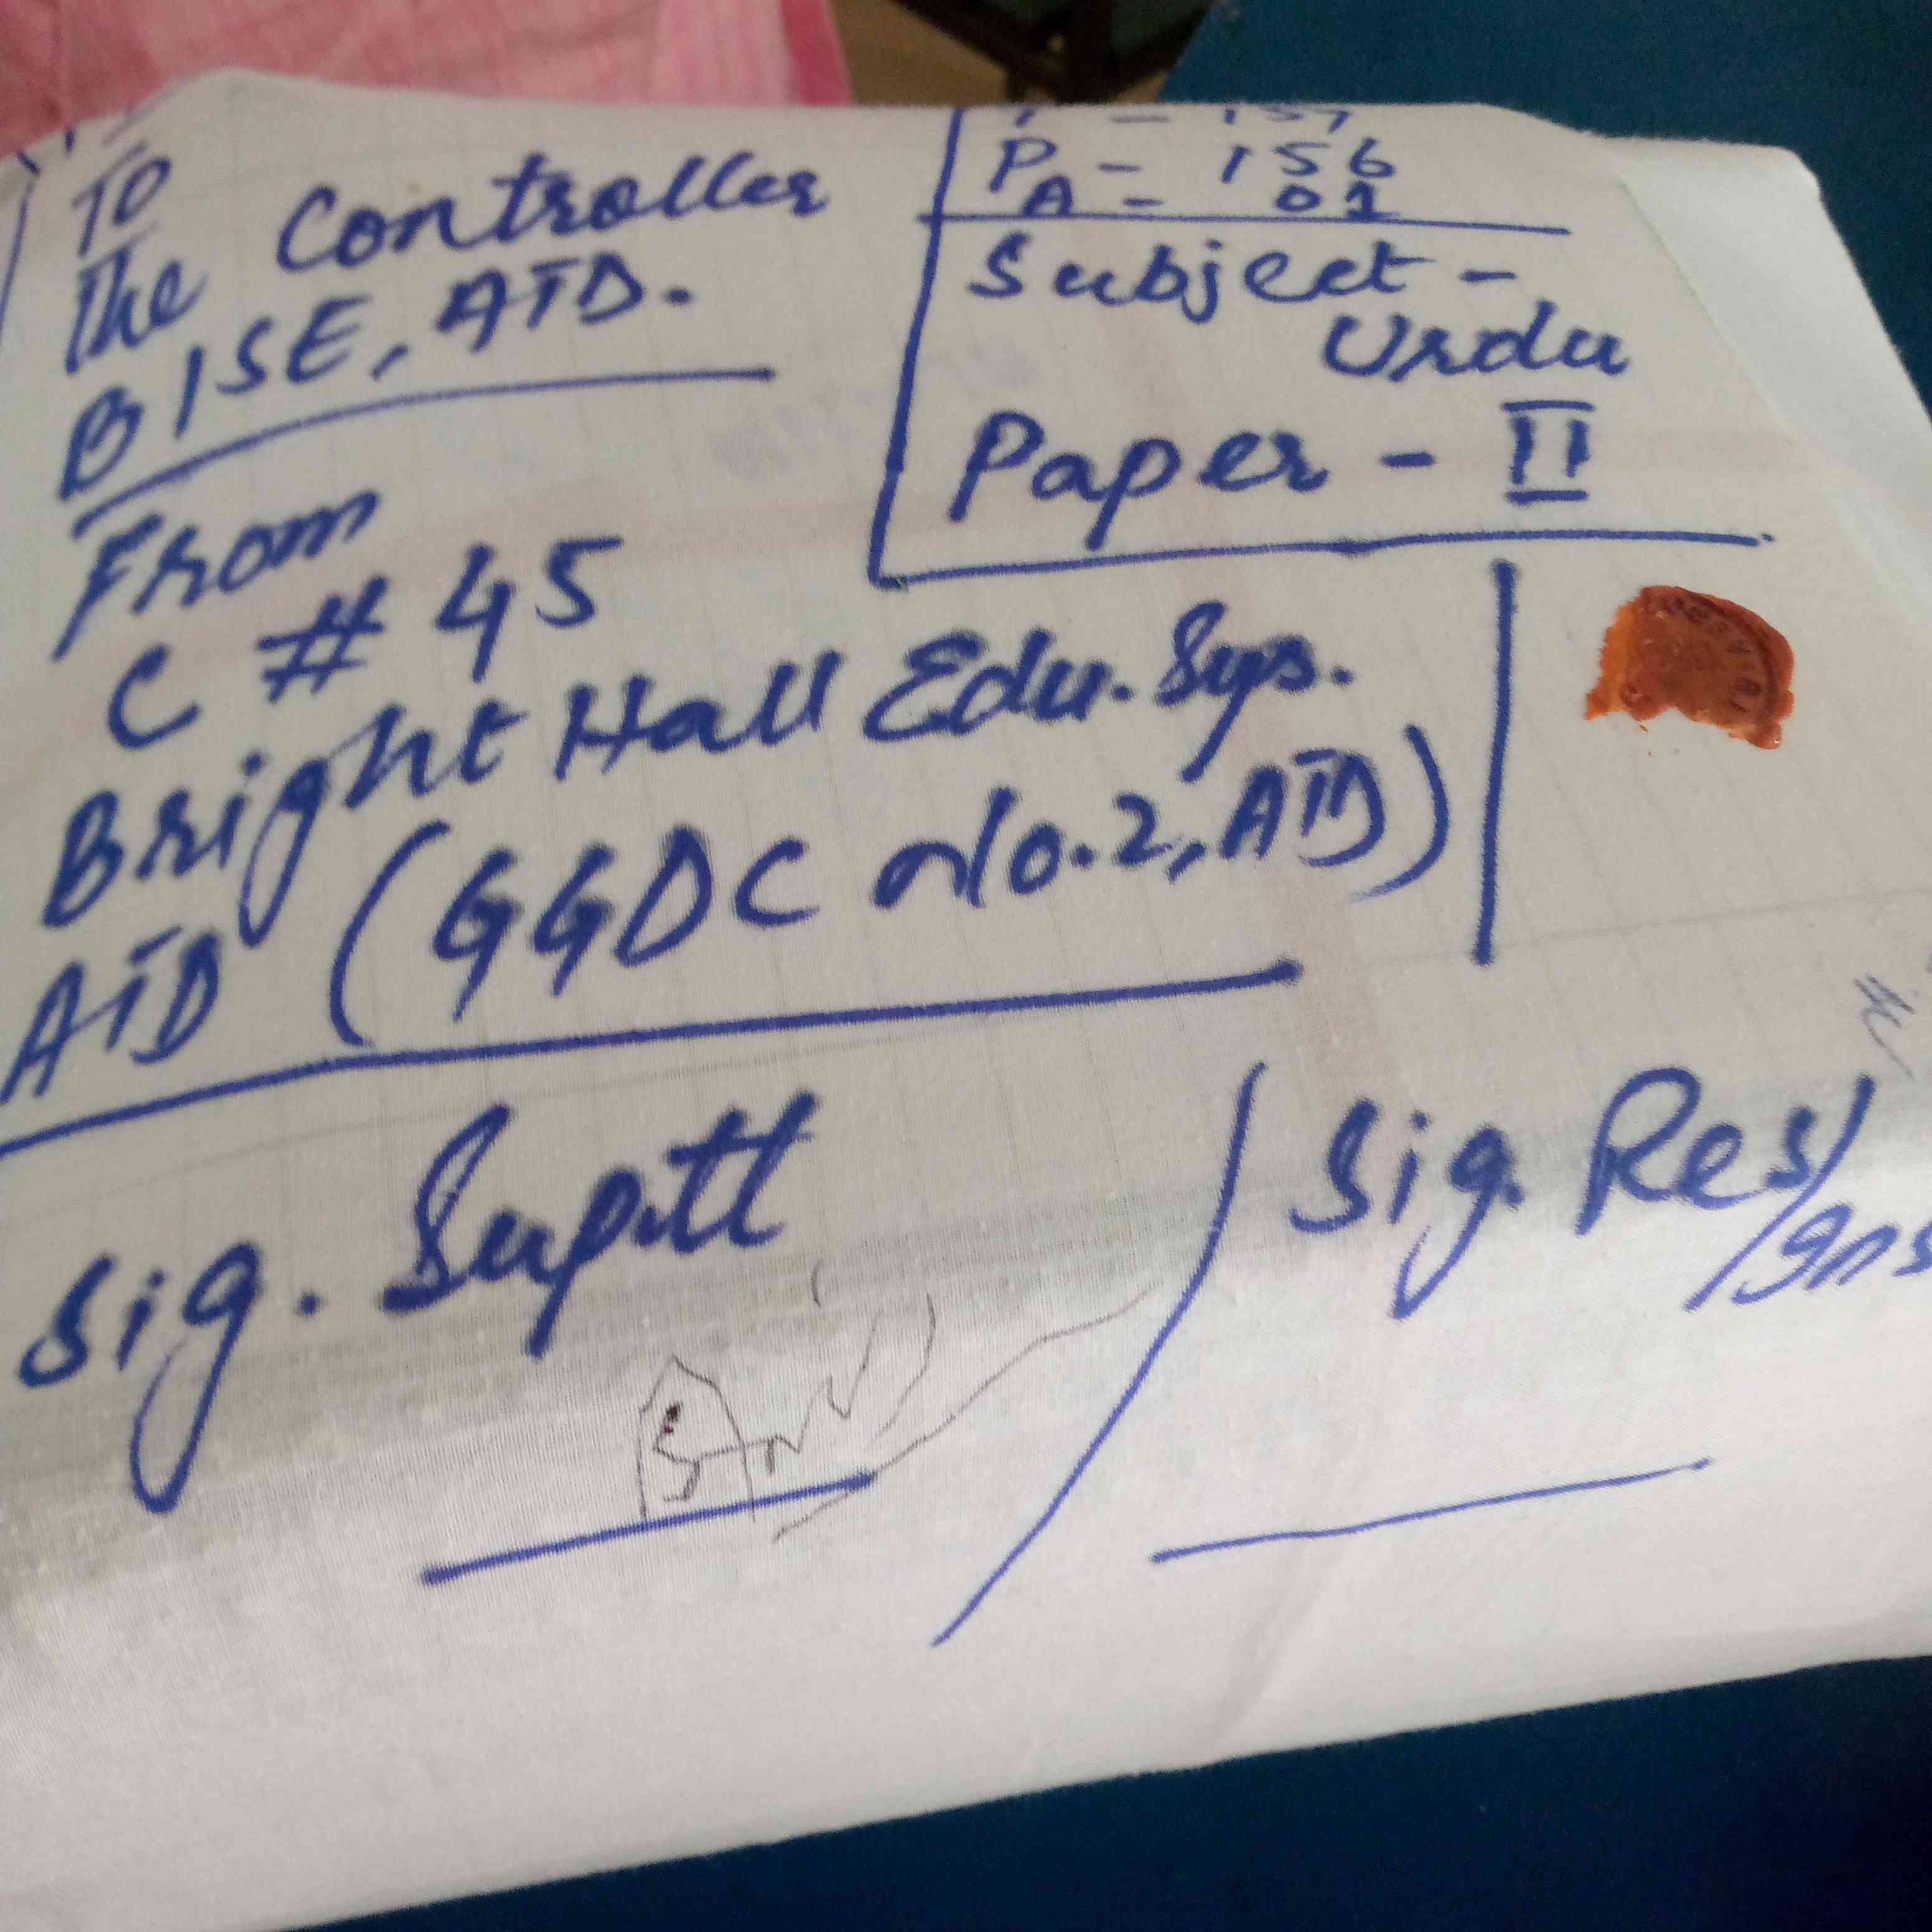 To
The Controller
BISE, ATD.
P - 156
A - 01
Subject -
Urdu
Paper - II
From
C # 45
Bright Hall Edu. Sys.
ATD (GGDC No.2, ATD)
Sig. Suptt
Sig. Res/
/Ins